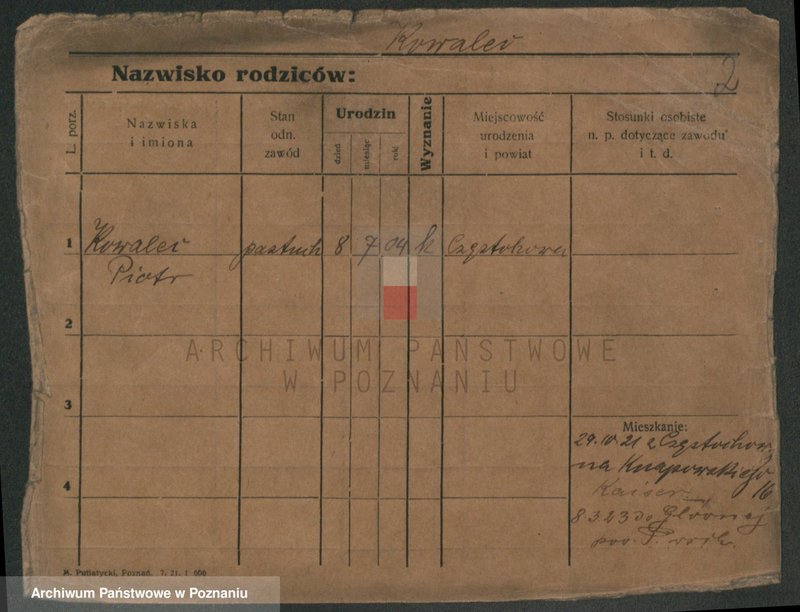 Kowalev
Nazwisko rodziców:
2
L. porz.
Nazwiska
i imiona
Stan
odn.
zawód
Urodzin
dzień
miesiąc
rok
Wyznanie
Miejscowość
urodzenia
i powiat
Stosunki osobiste
n. p. dotyczące zawodu
i t. d.
1
Kowalev pastuch 8 7 04 k Częstochowa
Piotr
2
ARCHIWUM PAŃSTWOWE
W POZNANIU
3
Mieszkanie:
29.10.21 z Częstochowy
na Knapowskiego
Kaiser 16
4
8.3.23 do Głównej
pow. P.
M. Putiatycki, Poznań. 7. 21. 1 000
Archiwum Państwowe w Poznaniu